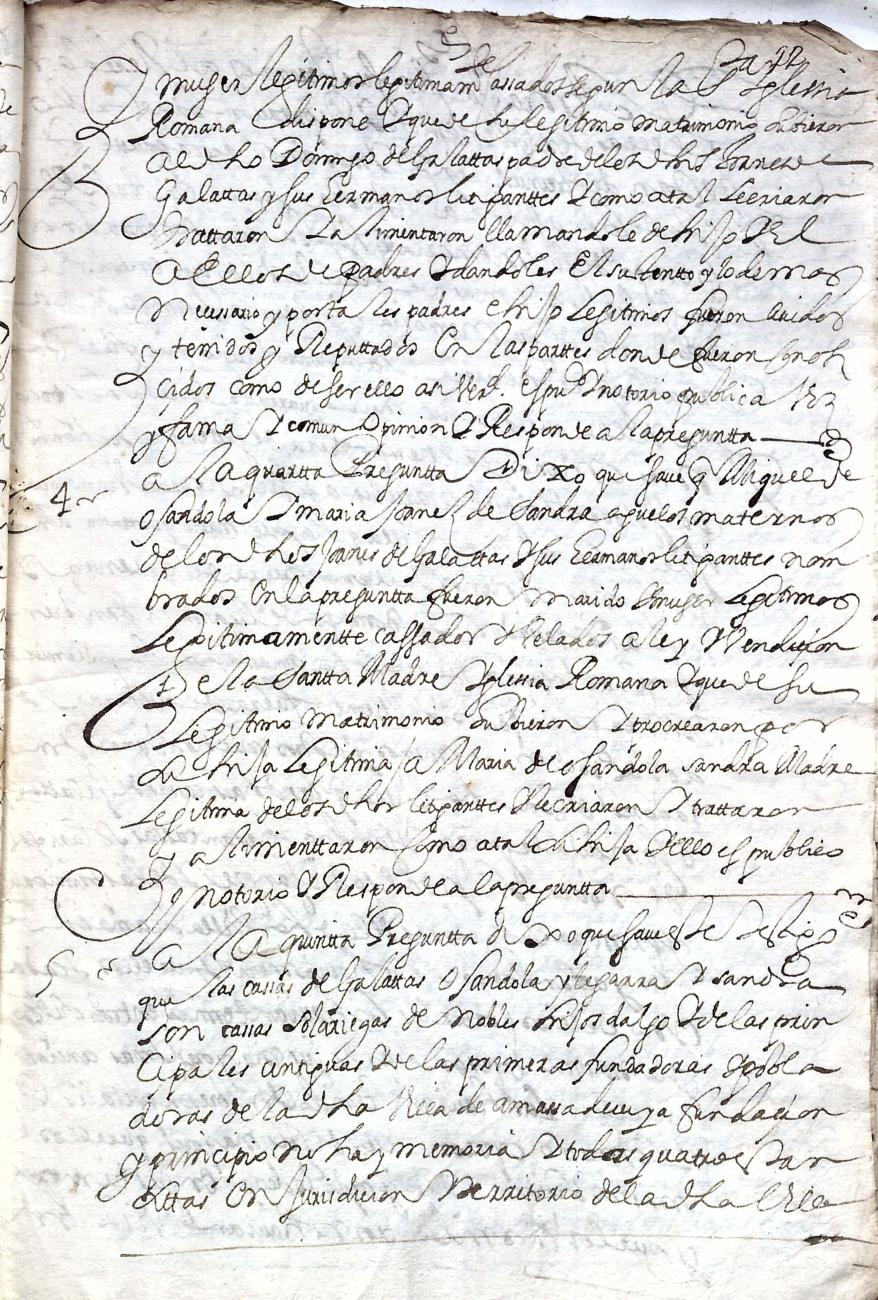 muger legitimos legitimamte cassados segun la Sta Iglessia
Romana dispone y que de su legitimo matrimonio oubieron
al dho Domingo de Galattas padre de los dhos Joanes de
Galattas y sus Hermanos litiganttes y como a tal le criaron
trattaron y alimentaron llamandole de hijo y El
a Ellos de padres y dandoles El sustentto y lo demas
necessario y por tales padres e hijo Legitimos fueron auidos
y tenidos y Reputtados En las parttes donde fueron conos
cidos como de ser ello asi Verd. es puco y notorio publica Voz
y fama y comun opinion y Responde a la pregunttta
4 a la quartta Preguntta Dixo que saue q Miguel de
osandola y maria Joanez de Sandra aguelos maternos
de los dhos Joanes de Galattas y sus Hermanos litiganttes nom
brados En la preguntta fueron marido y muger Legitimos
Legitimamentte cassados y Velados a ley y Vendicion
de la Santta Madre Yglessia Romana y que de su
Legitimo matrimonio oubieron y procrearon por
su hija Legitima a Maria de osandola sandra Madre
Legitima de los dhos litiganttes y le criaron y trattaron
y alimenttaron como a tal su hija y ello es publico
y notorio y Responde a la preguntta
5 a la quintta Preguntta dixo que saue este testigo
que las cassas de Galattas Osandola y legarra y sandra
son cassas solariegas de nobles hijos dalgo y de las prin
cipales antiguas y de las primeras fundadoras y pobla
doras de la dha Villa de amassa de cuya fundacion
y principio no hay memoria y todas quatro estan
sittas En Jurisdicion y territorio de la dha Villa